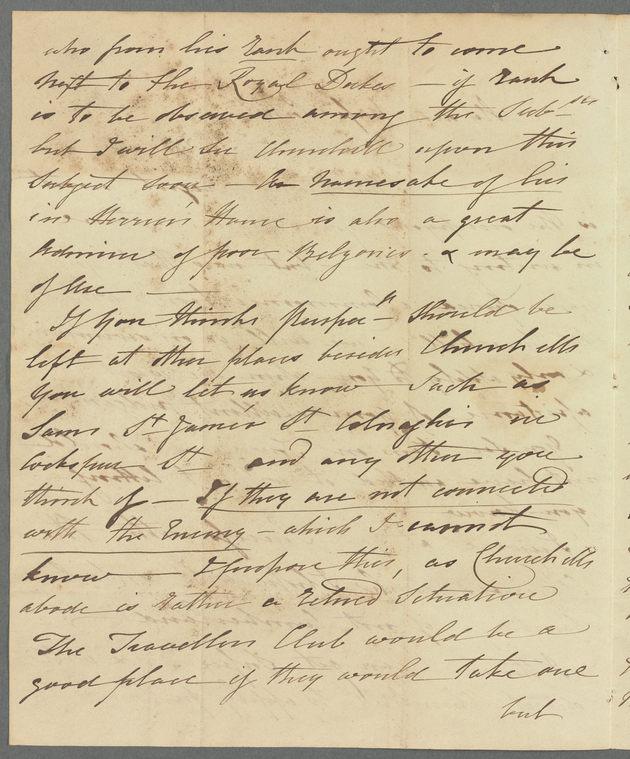 who from his Rank ought to come
next to the Royal Dukes — if Rank
is to be observed among the Sub-ers
but I will see Churchill upon this
Subject soon — A namesake of his
in Herries's House is also a great
Admirer of poor Belzoni & may be
of Use —
If you think Prospes should be
left at other places besides Churchills
you will let us know Such as
Sams St James's St Colnaghis in
Cockspur St and any other you
think of — If they are not connected
with the Enemy — which I cannot
know — I propose this, as Churchills
abode is rather a retired Situation
The Travellers Club would be a
good place if they would take one
but